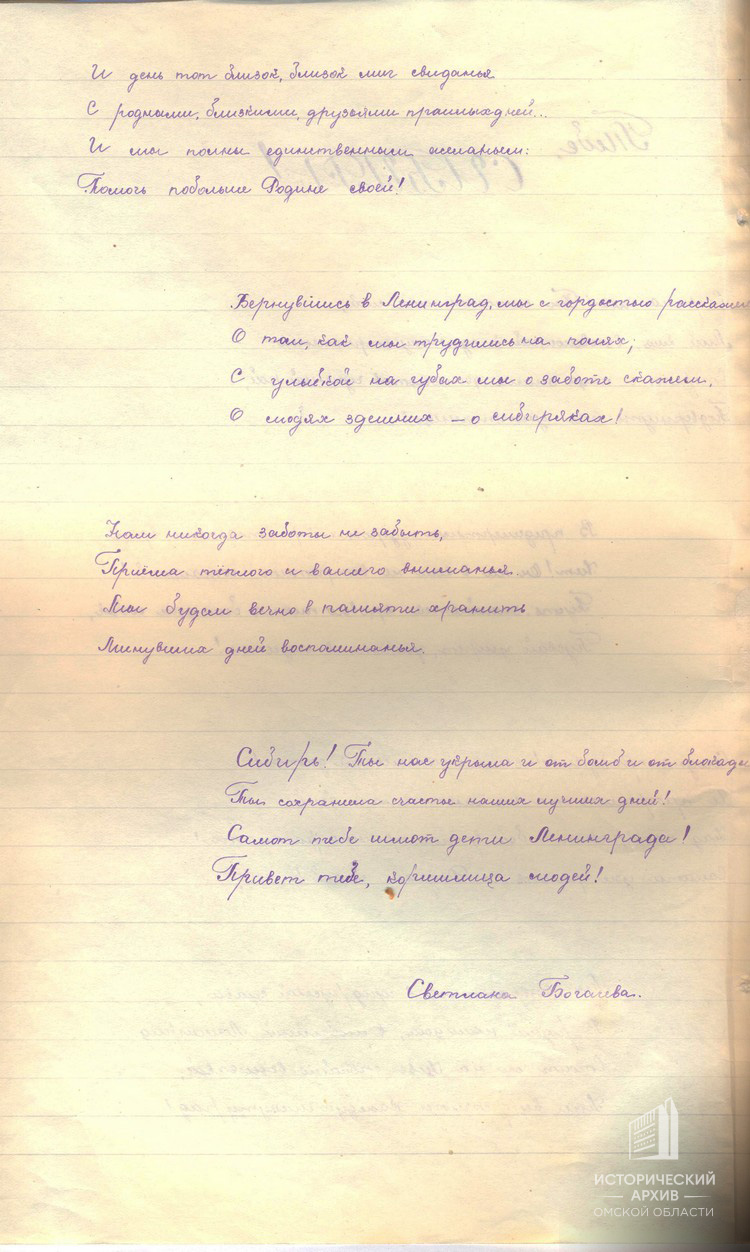 И день тот близок, близок миг свиданья
С родными, близкими, друзьями прошлых дней...
И мы полны единственным желаньем:
Помочь побольше Родине своей!
Вернувшись в Ленинград, мы с гордостью расскажем
О том, как мы трудились на полях;
С улыбкой на губах мы о заботе скажем,
О людях здешних – о сибиряках!
Нам никогда заботы не забыть,
Приёма тёплого и вашего вниманья.
Мы будем вечно в памяти хранить
Минувших дней воспоминанья.
Сибирь! Ты нас укрыла и от бомб и от блокады
Ты сохранила счастье наших лучших дней!
Салют тебе шлют дети Ленинграда!
Привет тебе, кормилица людей!
Светлана Богачева.
ИСТОРИЧЕСКИЙ
АРХИВ
ОМСКОЙ ОБЛАСТИ